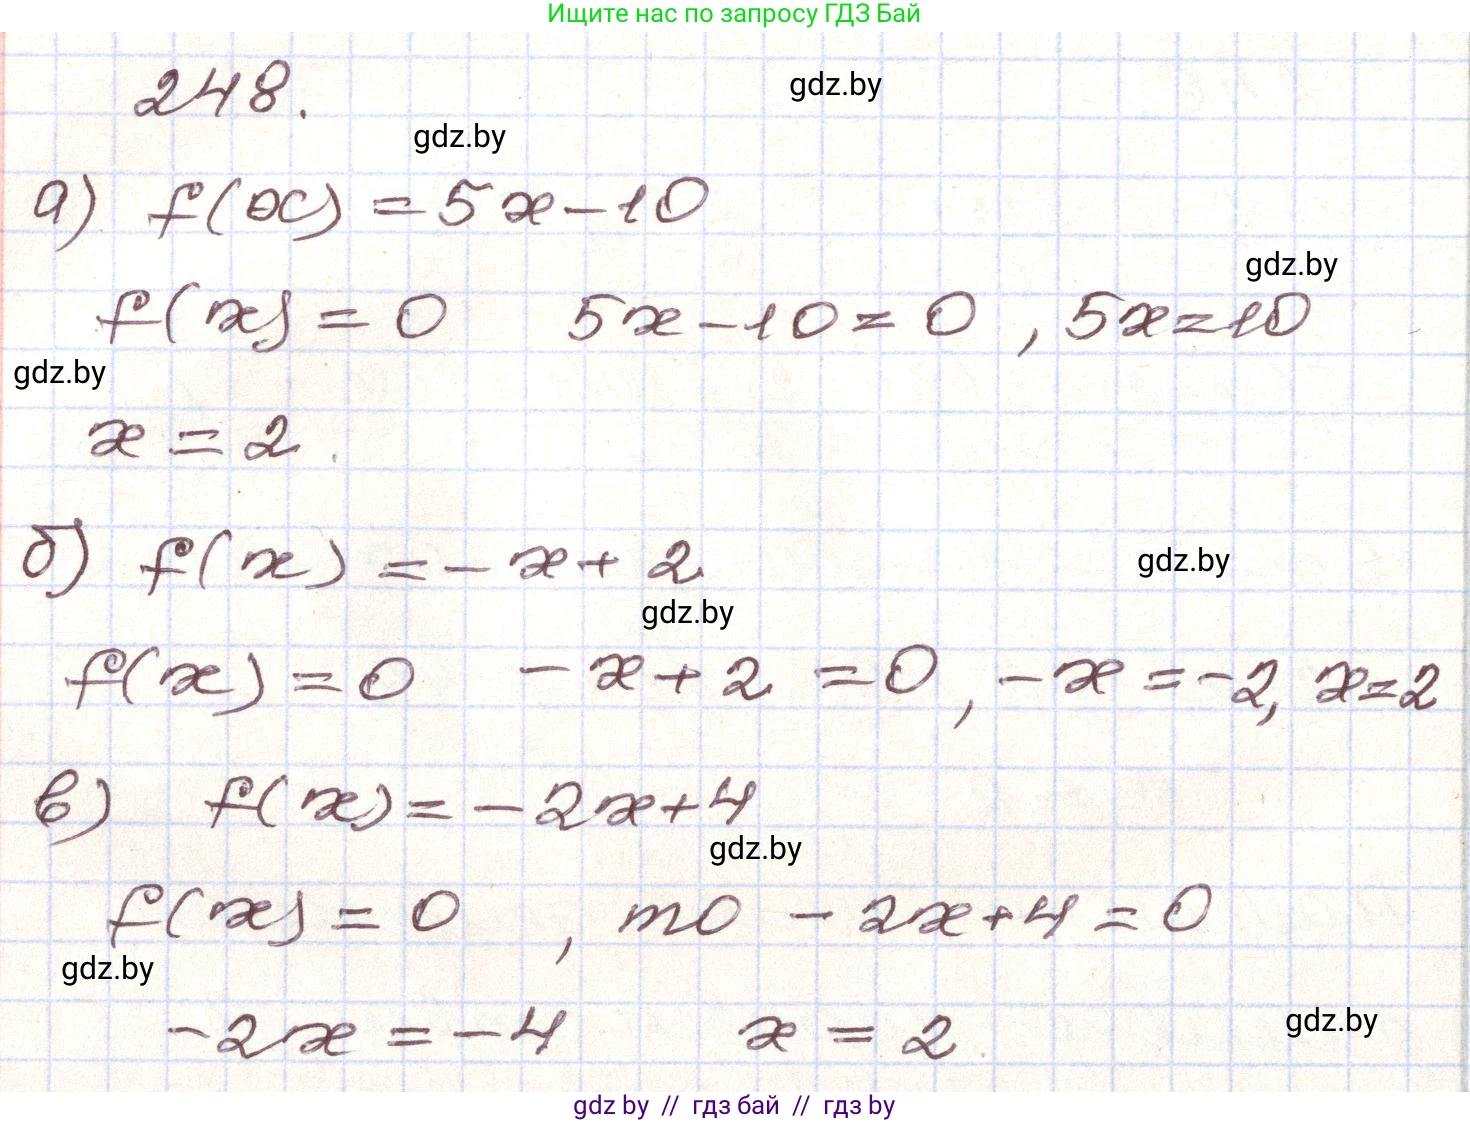 Ищите нас по запросу ГДЗ Бай
248.
gdz.by
gdz.by
а) f(x) = 5x - 10
gdz.by
f(x) = 0   5x - 10 = 0 , 5x = 10
gdz.by
x = 2.
б) f(x) = - x + 2
gdz.by
gdz.by
f(x) = 0   - x + 2 = 0 , - x = - 2, x = 2
в) f(x) = - 2x + 4
gdz.by
f(x) = 0 , то - 2x + 4 = 0
gdz.by
- 2x = - 4   x = 2
gdz.by
gdz by // гдз бай // гдз by